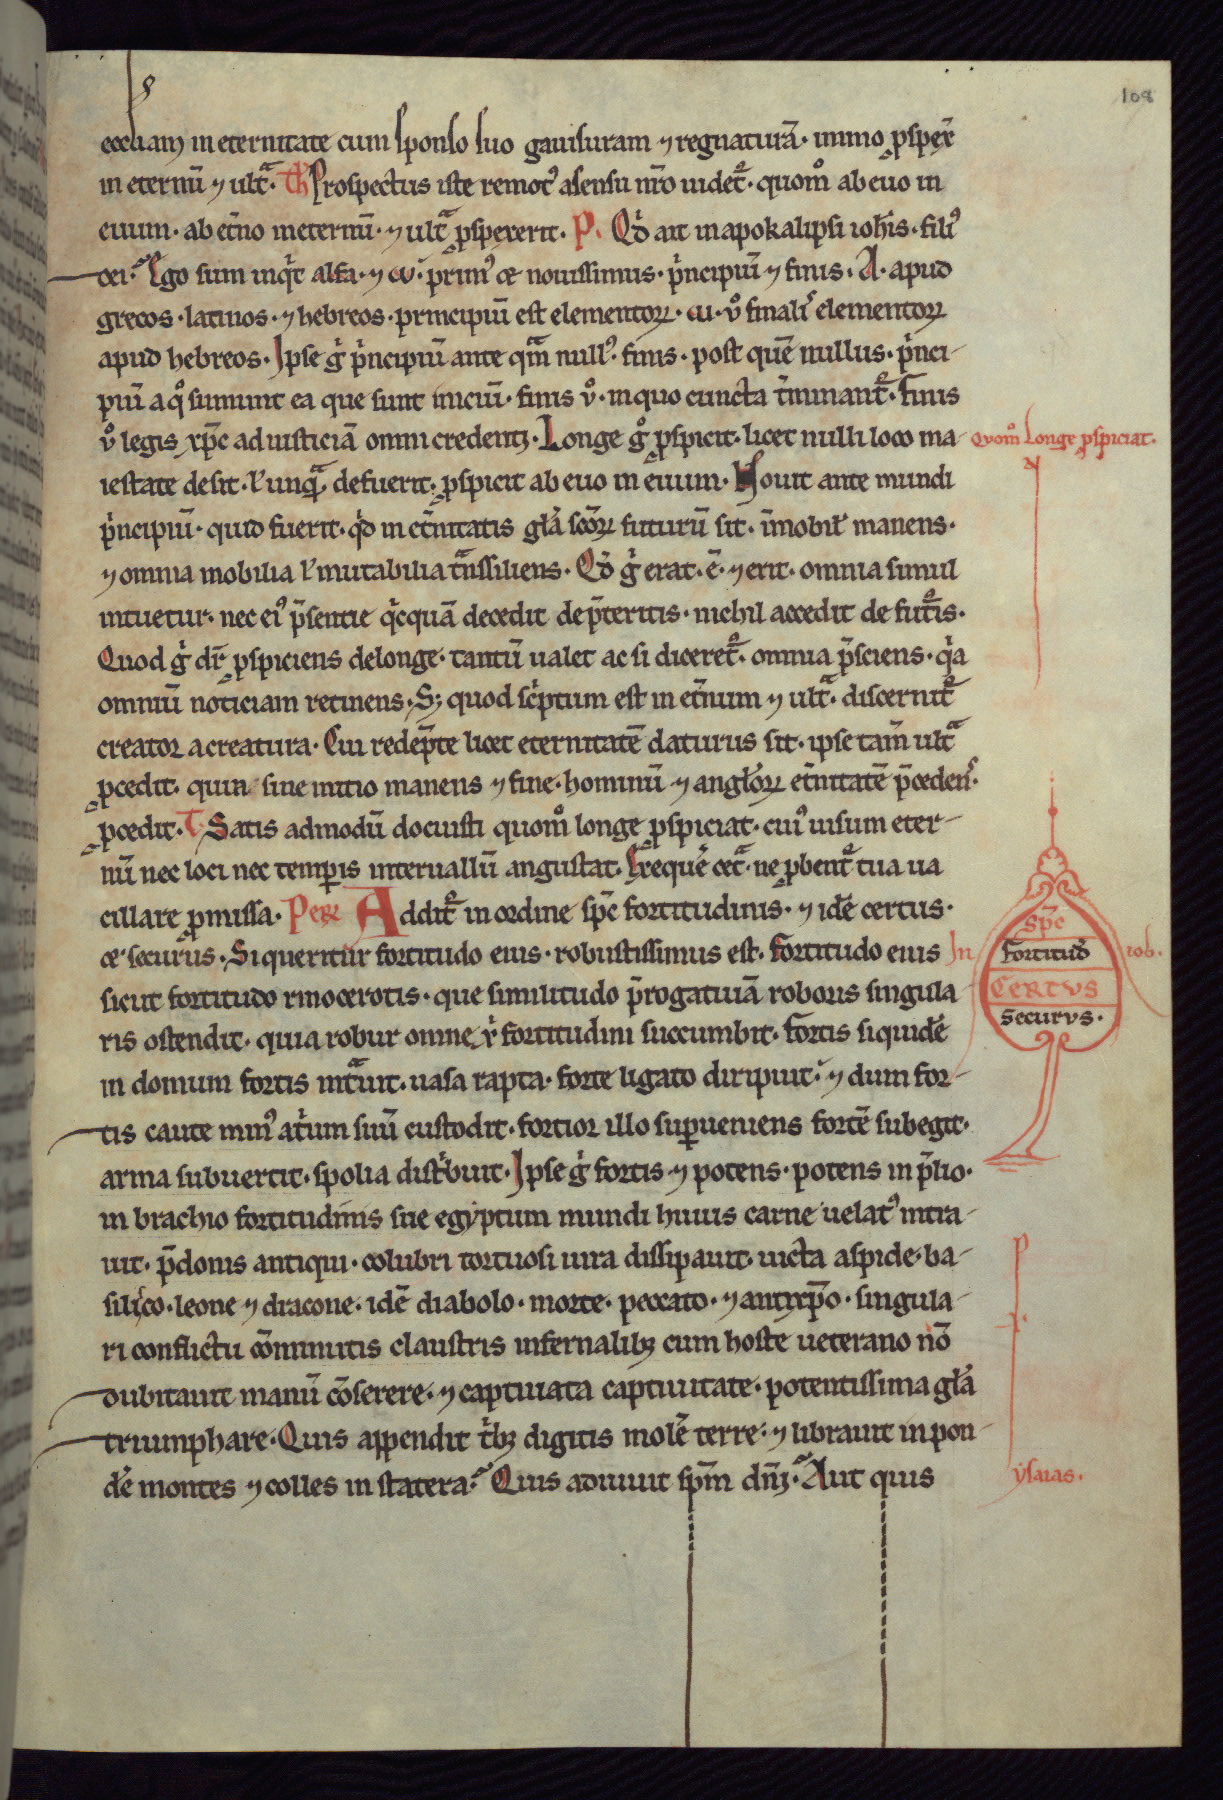 108
eccliam in eternitate cum sponso suo gauisuram ⁊ regnaturā· immo ꝓspexͥ
in eternū ⁊ ultᵃ· Th̄ Prospectus iste remotꝰ a sensu nr̄o uidet᷑· quom̊ ab euo in
euum· ab et̄no in eternū· ⁊ ultᵃ ꝓspexerit· P. Qd̓ ait in apokalipsi ioh̓is· filiꝰ
dei· Ego sum inqͥt alfa· ⁊ ω· primꝰ ⁊ nouissimus· pͥncipiū ⁊ finis· A· apud
grecos· latinos· ⁊ hebreos· principiū est elementoꝝ· ω· ů finalꝭ elementoꝝ
apud hebreos· Ipse gͥ pͥncipiū ante qm̄ nullꝰ· finis· post quē nullus· pͥnci-
piū a qͦ sumunt ea que sunt iniciū· finis ů· in quo cuncta t̄minant᷑· Finis
ů legis xp̄c ad iusticiā omni credentꝫ· Longe gͦ ꝓspicit· licet nulli loco ma-
Quom̊ longe ꝓspiciat·
iestate desit· l̓ unqᵃ defuerit· ꝓspicit ab euo in euum· Nouit ante mundi
pͥncipiū· quid fuerit· qͥd in et̄nitatis gl̓a sc̄oꝝ futurū sit· īmobilꝭ manens·
⁊ omnia mobilia l̓ mutabilia tᵃnssiliens· Qd̓ gͥ erat· ē· ⁊ erit· omnia simul
intuetur· nec eiꝰ p̄sentie qͥcquā decedit de p̄teritis· nichil accedit de fut᷑is·
Quod gͥ dr̄ ꝓspiciens de longe· tantū ualet ac si diceret᷑· omnia p̄sciens· qͥa
omniū noticiam retinens· Sꝫ quod scͥptum est in et̄num ⁊ ultᵃ· discernit᷑
creator a creatura· Cui rede p̄te licet eternitatē daturus sit· ipse tam̄ ultᵃ
ꝓcedit· quin sine initio manens ⁊ fine· hominū ⁊ angl̓oꝝ et̄nitatē p̄cedenꝭ·
ꝓcedit· T. Satis admodū docuisti quom̊ longe ꝓspiciat· cuiꝰ uisum eter-
nū nec loci nec temꝑis interuallū angustat· Exequē̓ cetᵃ· ne ꝓbent᷑ tua ua
cillare ꝓmissa· Pegͬ Addit᷑ in ordine sp̄c fortitudinis· ⁊ idē certus·
⁊ securus· Si queritur fortitudo eius· robustissimus est· Fortitudo eius
In iob.
sp̄c
fortitud̓
certus
securus·
sicut fortitudo rinocerotis· que similitudo p̄rogatiuā roboris singula-
ris ostendit· quia robur omne xͥ fortitudini succumbit· Fortis siquidē
in domum fortis intᵃuit· uasa rapta· forte ligato diripuit· ⁊ dum for-
tis caute minꝰ atͥum suū custodit· fortior illo suꝑueniens fortē subegit·
arma subuertit· spolia distͥbuit· Ipse gͥ fortis ⁊ potens· potens in p̄lio·
in brachio fortitudinis sue egyptum mundi huius carne uelatꝰ intra-
uit· p̄donis antiqui· colubri tortuosi iura dissipauit· uicta aspide· ba-
silico· leone ⁊ dracone· idē diabolo· morte· peccato· ⁊ antixp̄o· singula-
ri conflictu cōminutis claustris infernalibꝫ cum hoste ueterano nō
dubitauit manū cōserere· ⁊ captiuata captiuitate· potentissima gl̓a
triumphare· Quis appendit tͥbꝫ digitis molē terre· ⁊ librauit in pon-
dē montes ⁊ colles in statera· Quis adiuuit sp̄m dn̄j· Aut quis
ysaias·